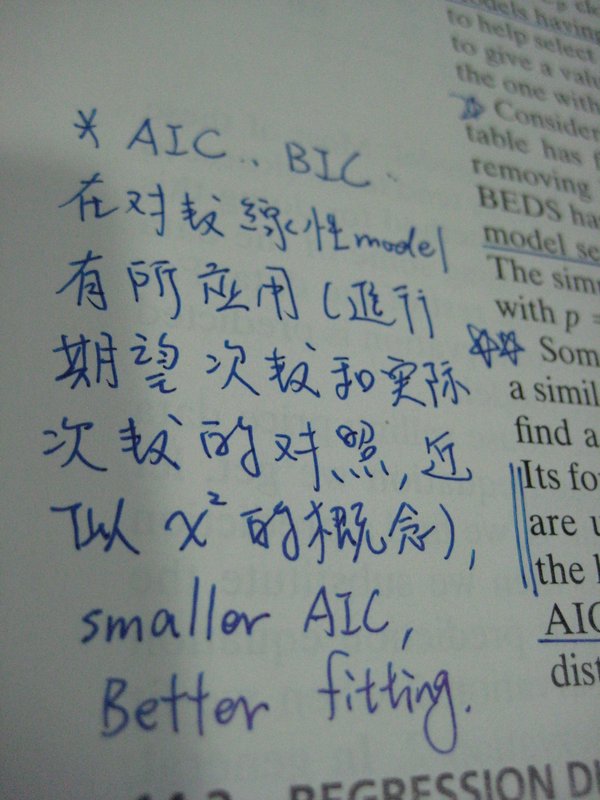 * AIC.. BIC.
在对数線性model
有所应用(進行
期望次数和实际
次数的对照,近
似 χ² 的概念),
smaller AIC,
Better fitting.
odels having
to help select
to give a valu
the one with
Consider
table has
removing
BEDS ha
model se
The sim
with p =
Som
a simil
find a
Its fo
are u
the
AIC
dist
REGRESSION DI